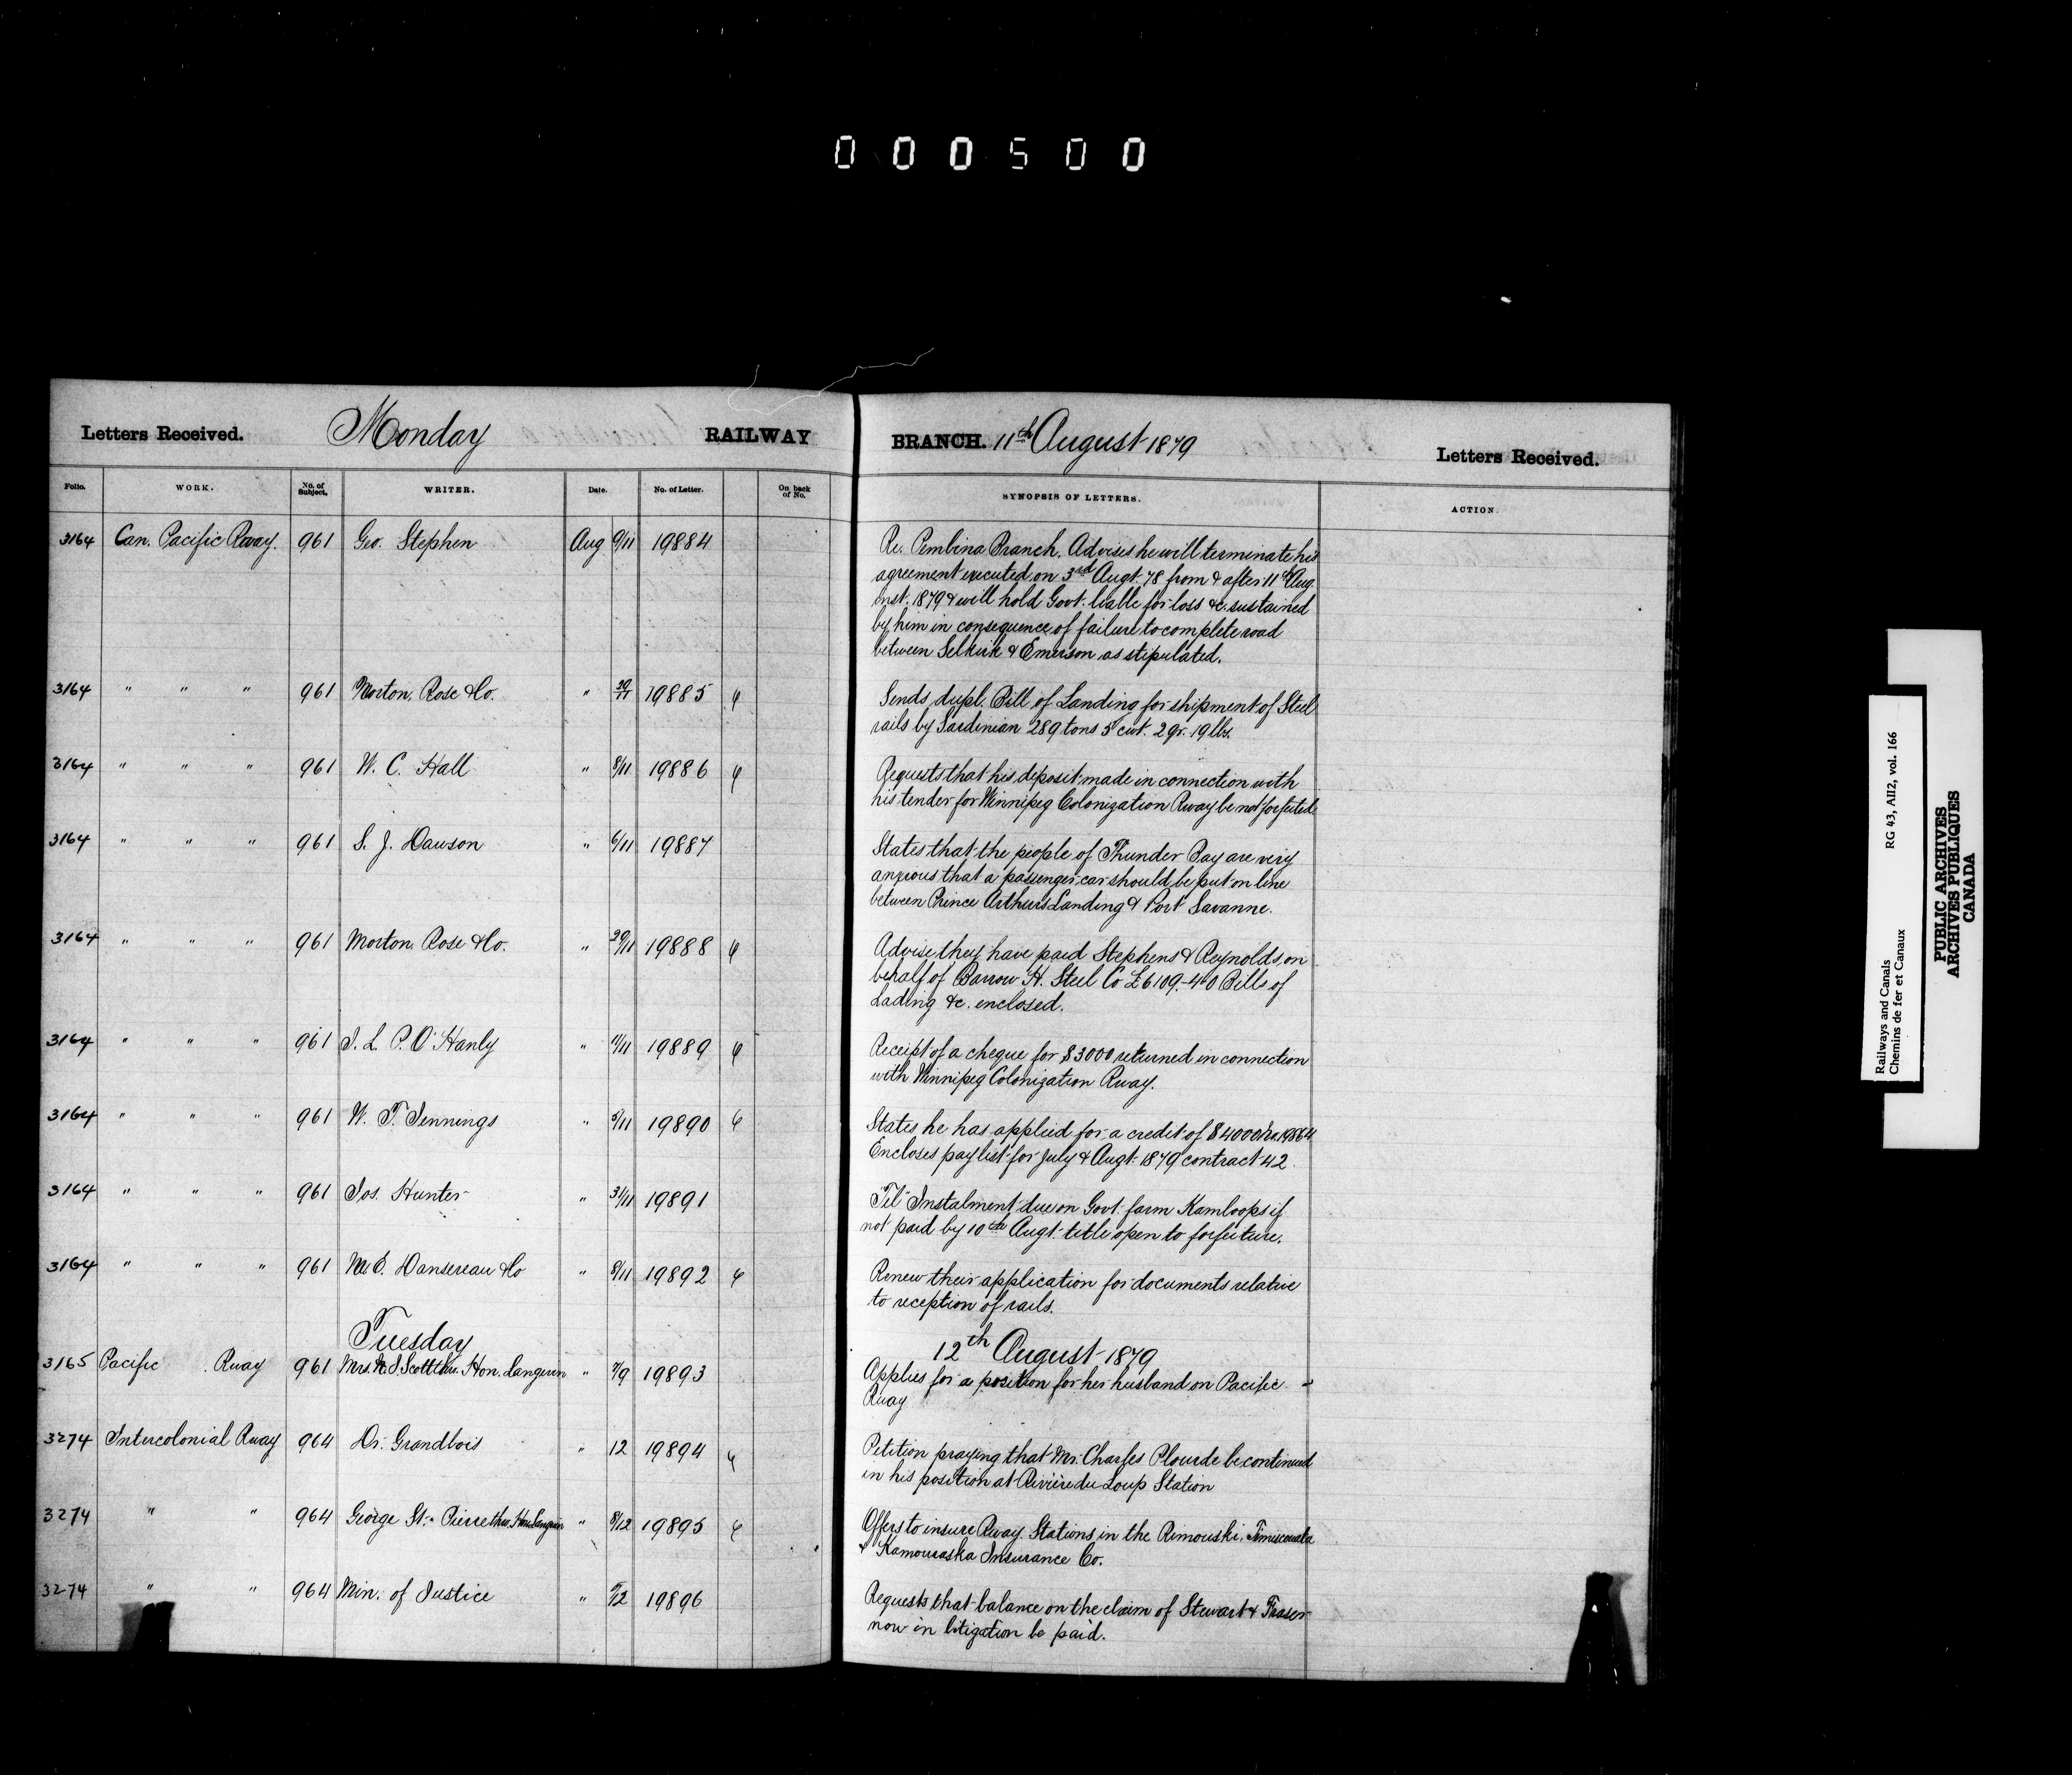 000500
Letters Received. Monday RAILWAY BRANCH. 11th August 1879 Letters Received.
Folio. WORK. No. of Subject. WRITER. Date. No. of Letter. On back of No. SYNOPSIS OF LETTERS. ACTION.
3164 Can. Pacific Rway. 961 Geo. Stephen Aug 9/11 19884 Re. Pembina Branch. Advises he will terminate his
agreement executed on 3rd Augt. 78 from & after 11th Aug.
inst. 1879 & will hold Govt. liable for loss &c. sustained
by him in consequence of failure to complete road
between Selkirk & Emerson as stipulated.
3164 " " " 961 Morton, Rose & Co. " 30/11 19885 Sends dupl. Bill of Landing for shipment of Steel
rails by Sardinian 289 tons 5 cwt. 2 qr. 19 lbs.
3164 " " " 961 W. C. Hall " 8/11 19886 Requests that his deposit made in connection with
his tender for Winnipeg Colonization Rway be not forfeited.
3164 " " " 961 S. J. Dawson " 6/11 19887 States that the people of Thunder Bay are very
anxious that a passenger car should be put on line
between Prince Arthurs Landing & Port Savanne.
3164 " " " 961 Morton Rose & Co. " 30/11 19888 Advise they have paid Stephens & Reynolds on
behalf of Barrow H. Steel Co £6109-4-0 Bills of
Lading &c. enclosed.
3164 " " " 961 J. L. P. O'Hanly " 11/11 19889 Receipt of a cheque for $3000 returned in connection
with Winnipeg Colonization Rway.
3164 " " " 961 W. T. Jennings " 5/11 19890 States he has applied for a credit of $4000 No 19864
Encloses pay list for July & Augt. 1879 contract 42.
3164 " " " 961 Jos. Hunter " 31/11 19891 Tel Instalment due on Govt. farm Kamloops if
not paid by 10th Augt. title open to forfeiture.
3164 " " " 961 Dansereau & Co " 8/11 19892 Renew their application for documents relative
to reception of rails.
Tuesday 12th August 1879
3165 Pacific Rway 961 Mrs. Scott thro. Hon. Langevin " 7/9 19893 Applies for a position for her husband on Pacific
Rway
3274 Intercolonial Rway 964 Dr. Grandbois " 12 19894 Petition praying that Mr. Charles Plourde be continued
in his position at Rivière du Loup Station
3274 " " 964 George St. Pierre thro. Hon Langevin " 8/12 19895 Offers to insure Rway. Stations in the Rimouski, Timiscouata
& Kamouraska Insurance Co.
3274 " " 964 Min. of Justice " 9/12 19896 Requests that balance on the claim of Stewart & Fraser
now in litigation be paid.
Railways and Canals RG 43, AII2, vol. 166
Chemins de fer et Canaux
PUBLIC ARCHIVES
ARCHIVES PUBLIQUES
CANADA